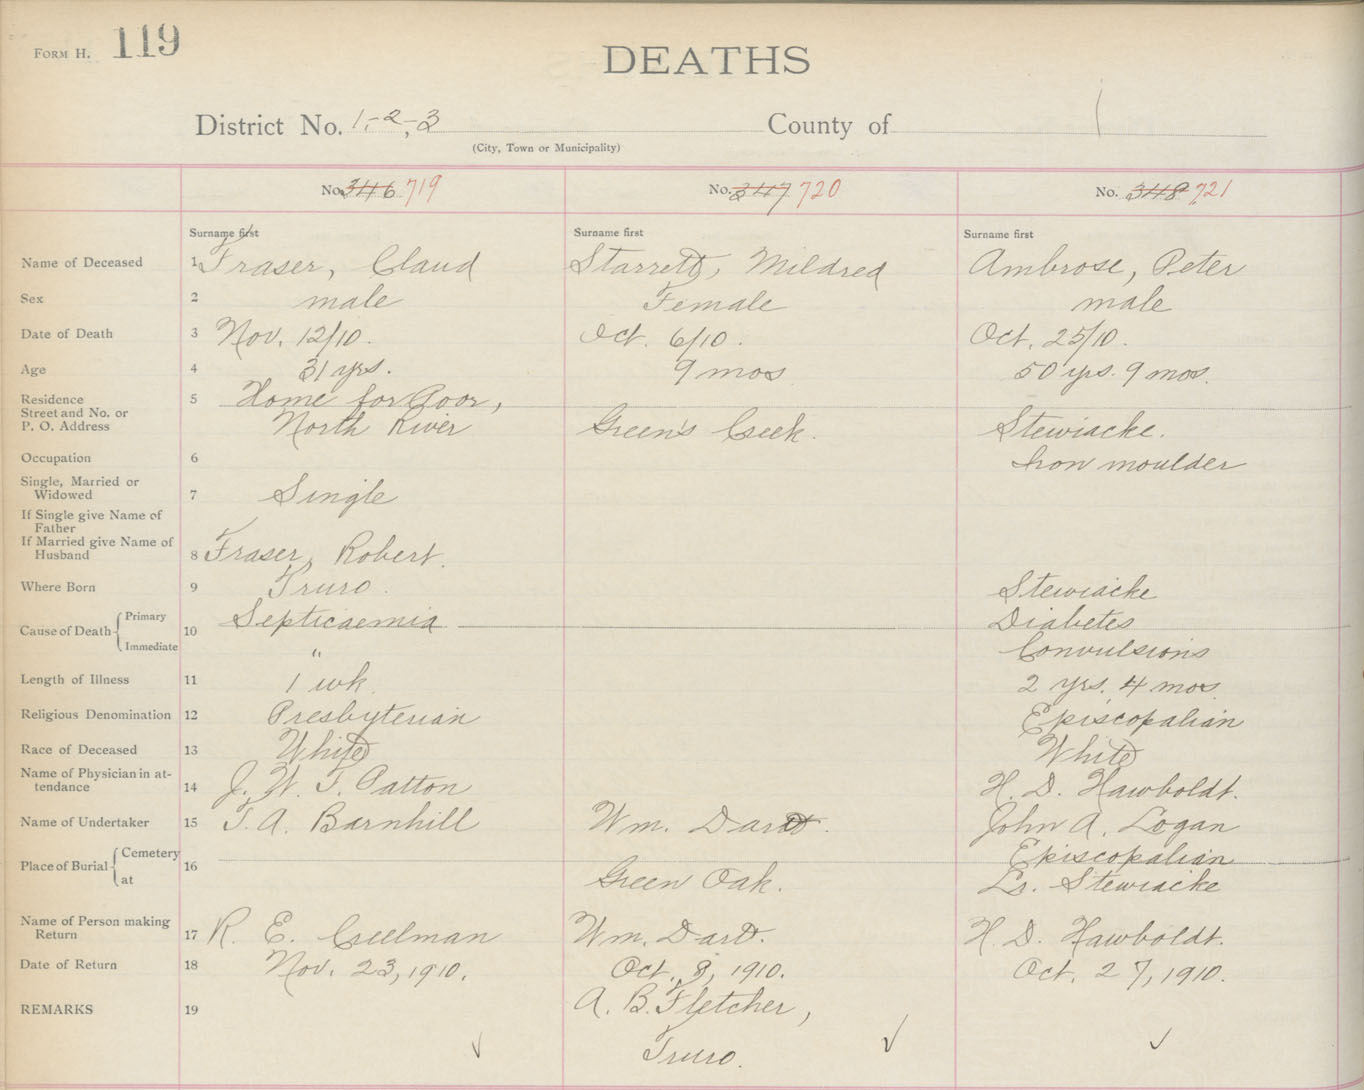 FORM H. 119
DEATHS
District No. 1,-2,-3 County of
(City, Town or Municipality)
No. 346 719 No. 347 720 No. 348 721
Surname first Surname first Surname first
Name of Deceased 1 Fraser, Claud Starrett, Mildred Ambrose, Peter
Sex 2 male Female male
Date of Death 3 Nov. 12/10. Oct. 6/10. Oct. 25/10.
Age 4 31 yrs. 9 mos 50 yrs. 9 mos.
Residence 5 Home for Poor,
Street and No. or
P. O. Address North River Green's Creek. Stewiacke.
Occupation 6 Iron moulder
Single, Married or
Widowed 7 Single
If Single give Name of
Father
If Married give Name of
Husband 8 Fraser, Robert.
Where Born 9 Truro. Stewiacke
Cause of Death Primary 10 Septicaemia Diabetes
Immediate " Convulsions
Length of Illness 11 1 wk. 2 yrs. 4 mos.
Religious Denomination 12 Presbyterian Episcopalian
Race of Deceased 13 White White
Name of Physician in at-
tendance 14 J. W. T. Patton H. D. Hawboldt.
Name of Undertaker 15 T. A. Barnhill Wm. Dart. John A. Logan
Place of Burial Cemetery 16 Episcopalian
at Green Oak. Lr. Stewiacke
Name of Person making
Return 17 R. E. Creelman Wm. Dart. H. D. Hawboldt.
Date of Return 18 Nov. 23, 1910. Oct. 8, 1910. Oct. 27, 1910.
REMARKS 19 A. B. Fletcher,
Truro.